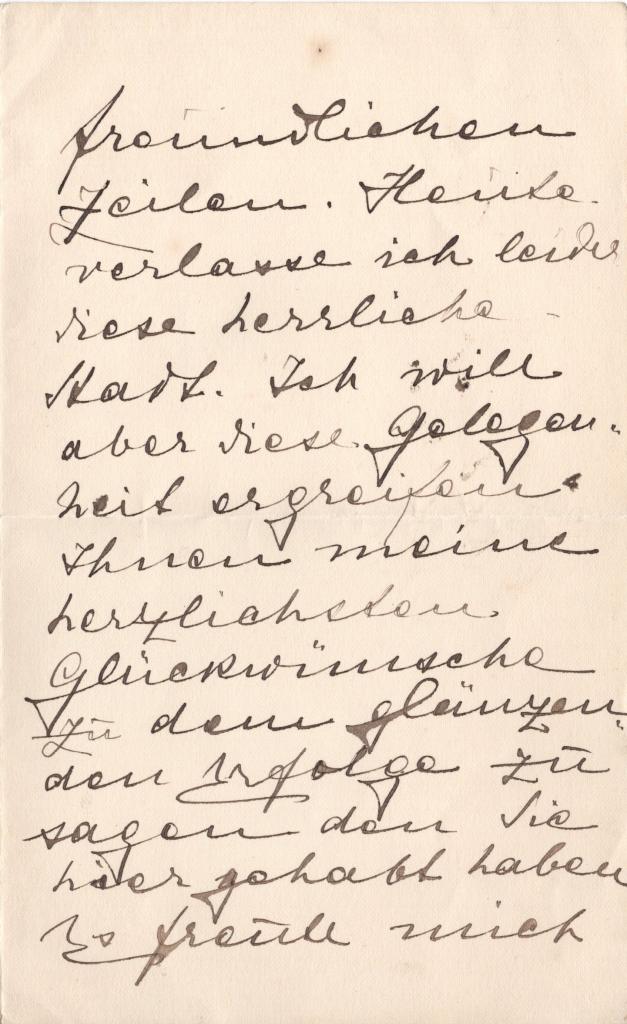 freundlichen
Zeilen. Heute
verlasse ich leider
diese herrliche
Stadt. Ich will
aber diese Gelegen-
heit ergreifen
Ihnen meine
herzlichsten
Glückwünsche
zu dem glänzen-
den Erfolge zu
sagen den Sie
hier gehabt haben
Es freute mich